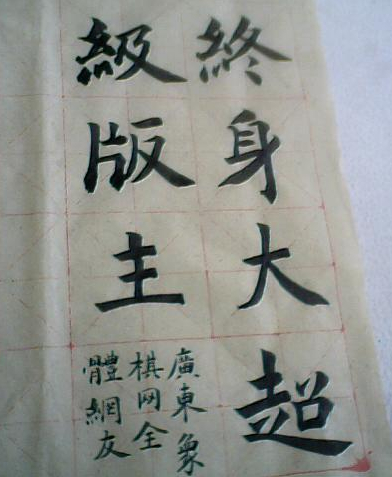 終身大超
級版主
廣東象
棋网全
體網友